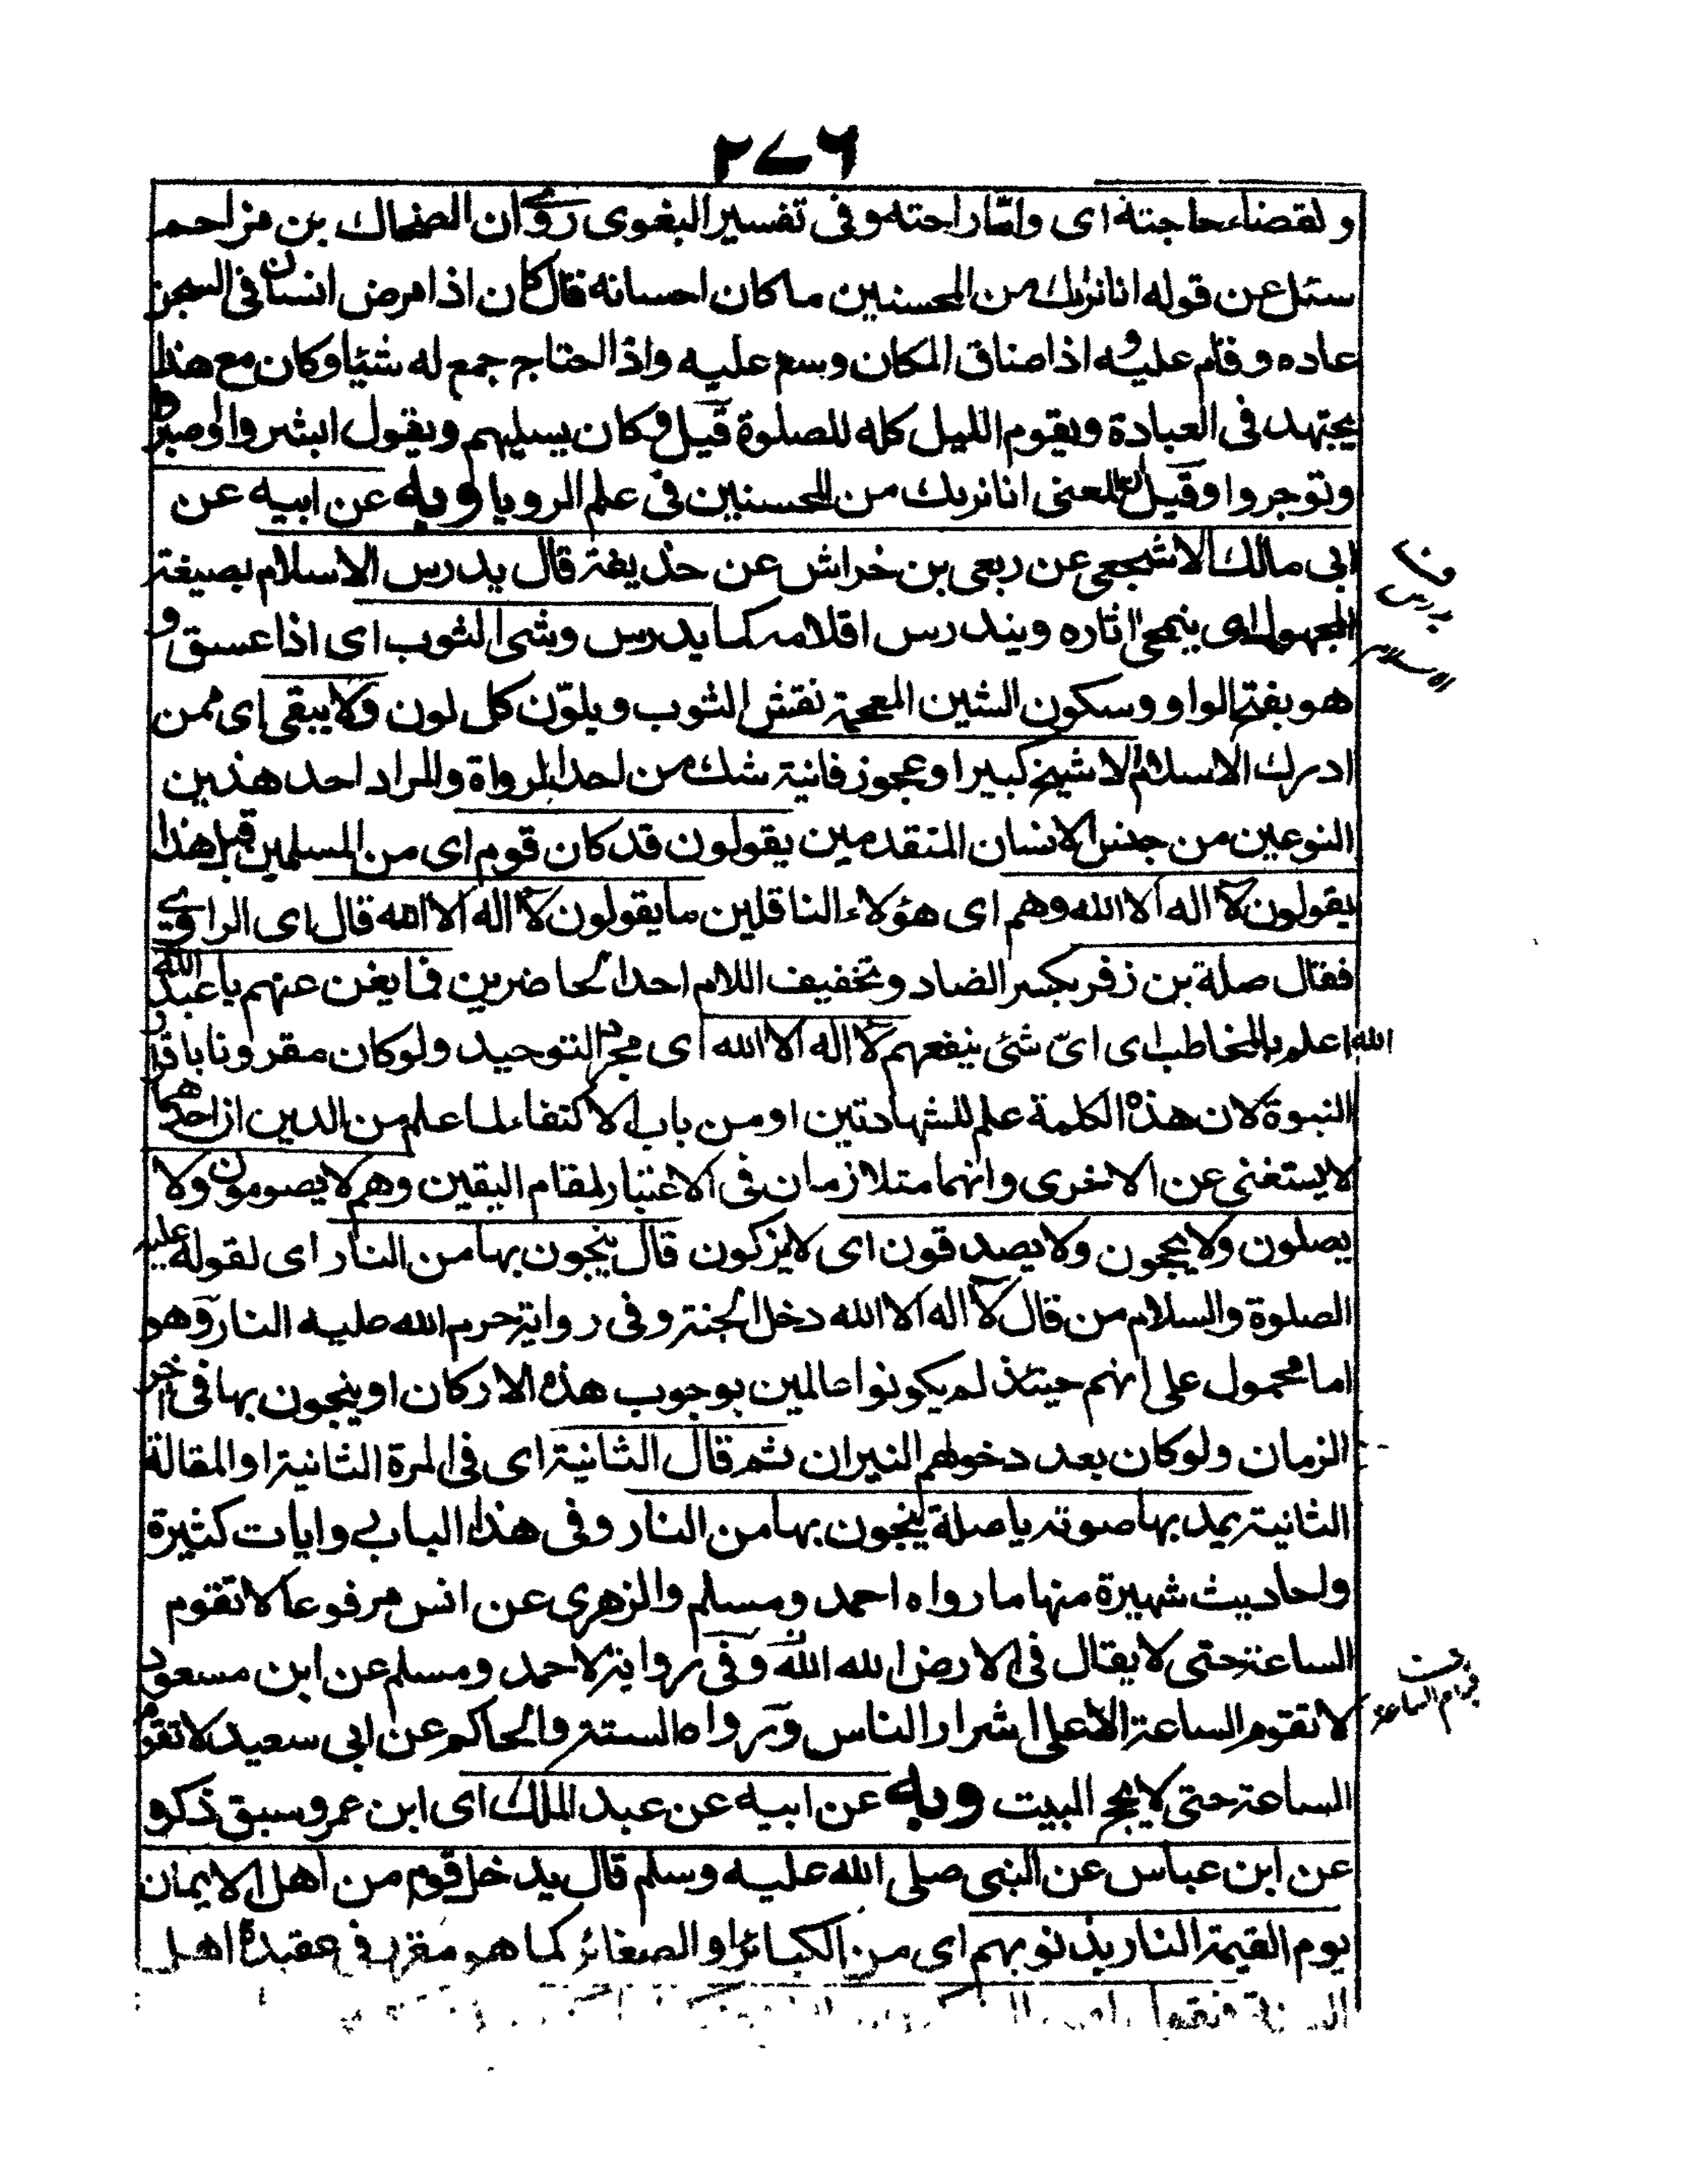 ٢٧٦
ولقضاء حاجته اى واما راحته وفى تفسير البغوى روى ان الضحاك بن مزاحم
سئل عن قوله انا نرىك من المحسنين ما كان احسانه قال كان اذا مرض انسان فى السجن
عاده وقام عليه و اذا ضاق المكان وسع عليه واذا احتاج جمع له شيئا وكان مع هذا
يجتهد فى العبادة ويقوم الليل كله للصلوة قيل وكان يسليهم ويقول ابشروا واصبروا
وتوجروا وقيل ان المعنى انا نريك من المحسنين فى علم الرويا وبه عن ابيه عن
ابى مالك الاشجعى عن ربعى بن خراش عن حذيفة قال يدرس الاسلام بصيغة
المجهول اى ينمحى اثاره ويندرس اقلامه كما يدرس وشى الثوب اى اذا عسق و
هو بفتح الواو وسكون الشين المعجمة نقش الثوب ويلوّن كل لون ولا يبقى اى ممن
ادرك الاسلام الا شيخ كبير او عجوز فانية شك من احد الرواة والمراد احد هذين
النوعين من جنس الانسان المتقدمين يقولون قد كان قوم اى من المسلمين قبل هذا
يقولون لا اله الا الله وهم اى هؤلاء الناقلين ما يقولون لا اله الا الله قال اى الراوى
فقال صلة بن زفر بكسر الضاد وتخفيف اللام احد الحاضرين فما يغن عنهم يا عبد الله
الله اعلم بالمخاطب اى اىّ شئ ينفعهم لا اله الا الله اى مجرد التوحيد ولو كان مقرونا باقرار
النبوة لان هذه الكلمة علم للشهادتين او من باب الاكتفاء لما علم من الدين ان احدهما
لا يستغنى عن الاخرى وانهما متلازمان فى الاعتبار لمقام اليقين وهم لا يصومون ولا
يصلون ولا يحجون ولا يصدقون اى لا يزكون قال ينجون بها من النار اى لقوله عليه
الصلوة والسلام من قال لا اله الا الله دخل الجنة وفى رواية حرم الله عليه النار وهو
اما محمول على انهم حينئذ لم يكونوا عالمين بوجوب هذه الاركان او ينجون بها فى اخر
الزمان ولو كان بعد دخولهم النيران ثم قال الثانية اى فى المرة الثانية او المقالة
الثانية يمد بها صوته يا صلة ينجون بها من النار وفى هذا الباب روايات كثيرة
واحاديث شهيرة منها ما رواه احمد ومسلم والزهرى عن انس مرفوعا لا تقوم
الساعة حتى لا يقال فى الارض الله الله وفى رواية لاحمد ومسلم عن ابن مسعود
لا تقوم الساعة الا على اشرار الناس ورواه الستة والحاكم عن ابى سعيد لا تقوم
الساعة حتى لا يحج البيت وبه عن ابيه عن عبد الملك اى ابن عمرو سبق ذكره
عن ابن عباس عن النبى صلى الله عليه وسلم قال يدخل قوم من اهل الايمان
يوم القيمة النار بذنوبهم اى من الكبائر او الصغائر كما هو مقرر فى عقيدة اهل
يدرس
الاسلام
قيام الساعة